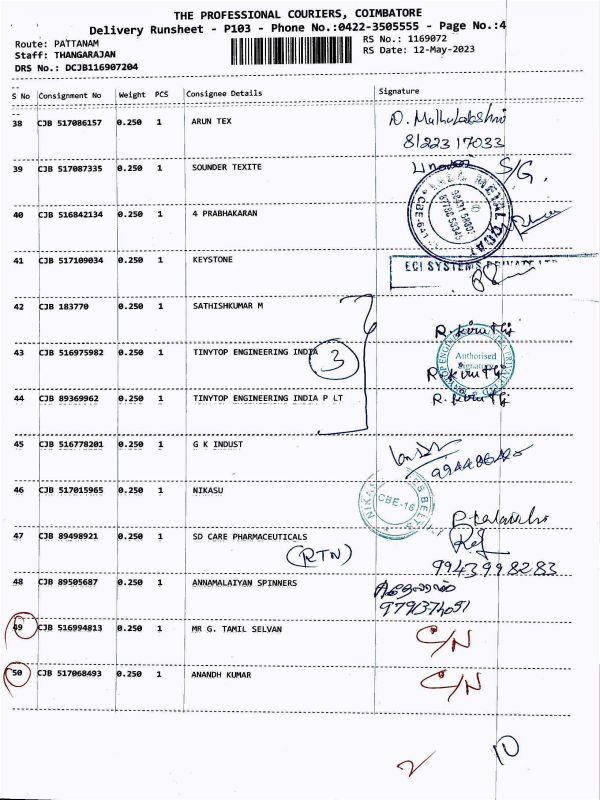 THE PROFESSIONAL COURIERS, COIMBATORE
Delivery Runsheet - P103 - Phone No.:0422-3505555 - Page No.:4
Route: PATTANAM
RS No.: 1169072
Staff: THANGARAJAN
RS Date: 12-May-2023
DRS No.: DCJB116907204
S No Consignment No Weight PCS Consignee Details Signature
38 CJB 517086157 0.250 1 ARUN TEX
8122317033
39 CJB 517087335 0.250 1 SOUNDER TEXITE S/G.
40 CJB 516842134 0.250 1 4 PRABHAKARAN
41 CJB 517109034 0.250 1 KEYSTONE
ECI SYSTEMS PRIVATE LTD
42 CJB 183770 0.250 1 SATHISHKUMAR M
43 CJB 516975982 0.250 1 TINYTOP ENGINEERING INDIA 3 Authorised Signatory
44 CJB 89369962 0.250 1 TINYTOP ENGINEERING INDIA P LT
45 CJB 516778201 0.250 1 G K INDUST
46 CJB 517015965 0.250 1 NIKASU CBE-16
47 CJB 89498921 0.250 1 SD CARE PHARMACEUTICALS
(RTN) 9943998283
48 CJB 89505687 0.250 1 ANNAMALAIYAN SPINNERS
9791374051
49 CJB 516994813 0.250 1 MR G. TAMIL SELVAN C/N
50 CJB 517068493 0.250 1 ANANDH KUMAR C/N
2 10